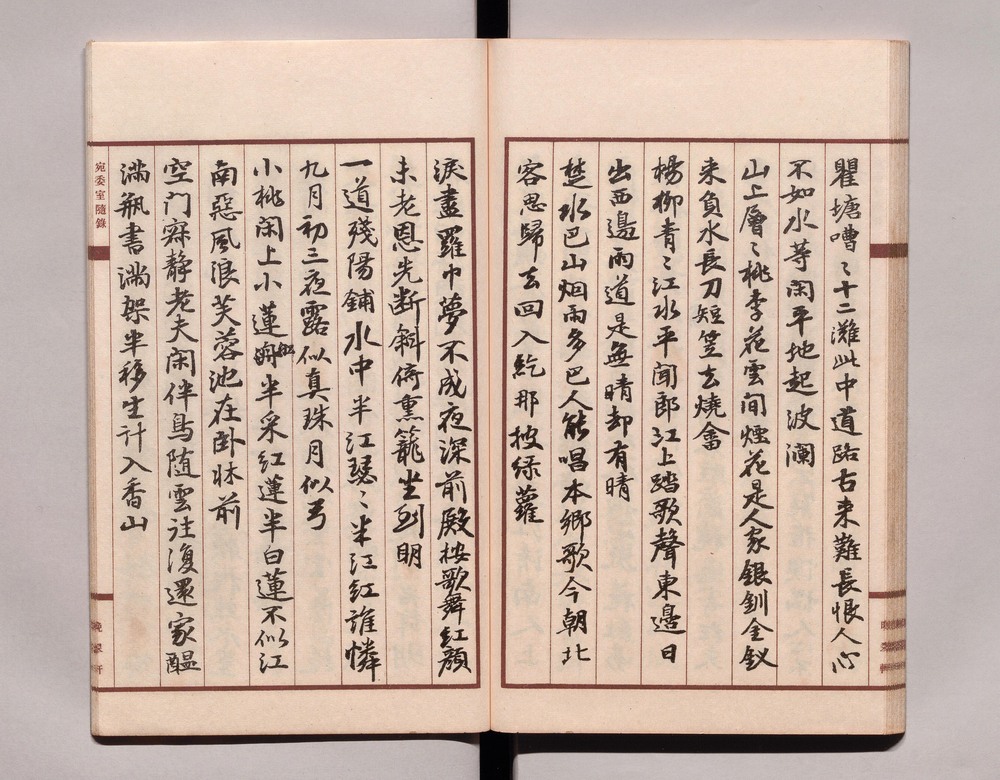 瞿塘嘈〻十二灘此中道路古来難長恨人心
不如水等闲平地起波澜
山上層〻桃李花雲间煙花是人家銀釧金釵
来負水長刀短笠去燒畬
楊柳青〻江水平聞郎江上踏歌聲東邉日
出西邉雨道是無晴却有晴
楚水巴山烟雨多巴人能唱本鄉歌今朝北
客思歸去回入紇那披綠蘿
淚盡羅巾夢不成夜深前殿按歌舞紅顏
未老恩先断斜倚熏籠坐到明
一道殘陽鋪水中半江瑟〻半江红誰憐
九月初三夜露似真珠月似弓
小桃闲上小蓮船半采红蓮半白蓮不似江
南惡風浪芙蓉池在卧牀前
空门寂静老夫闲伴鳥随雲往復還家醖
满瓶書满架半移生计入香山
宛委室隨錄
晚翠軒